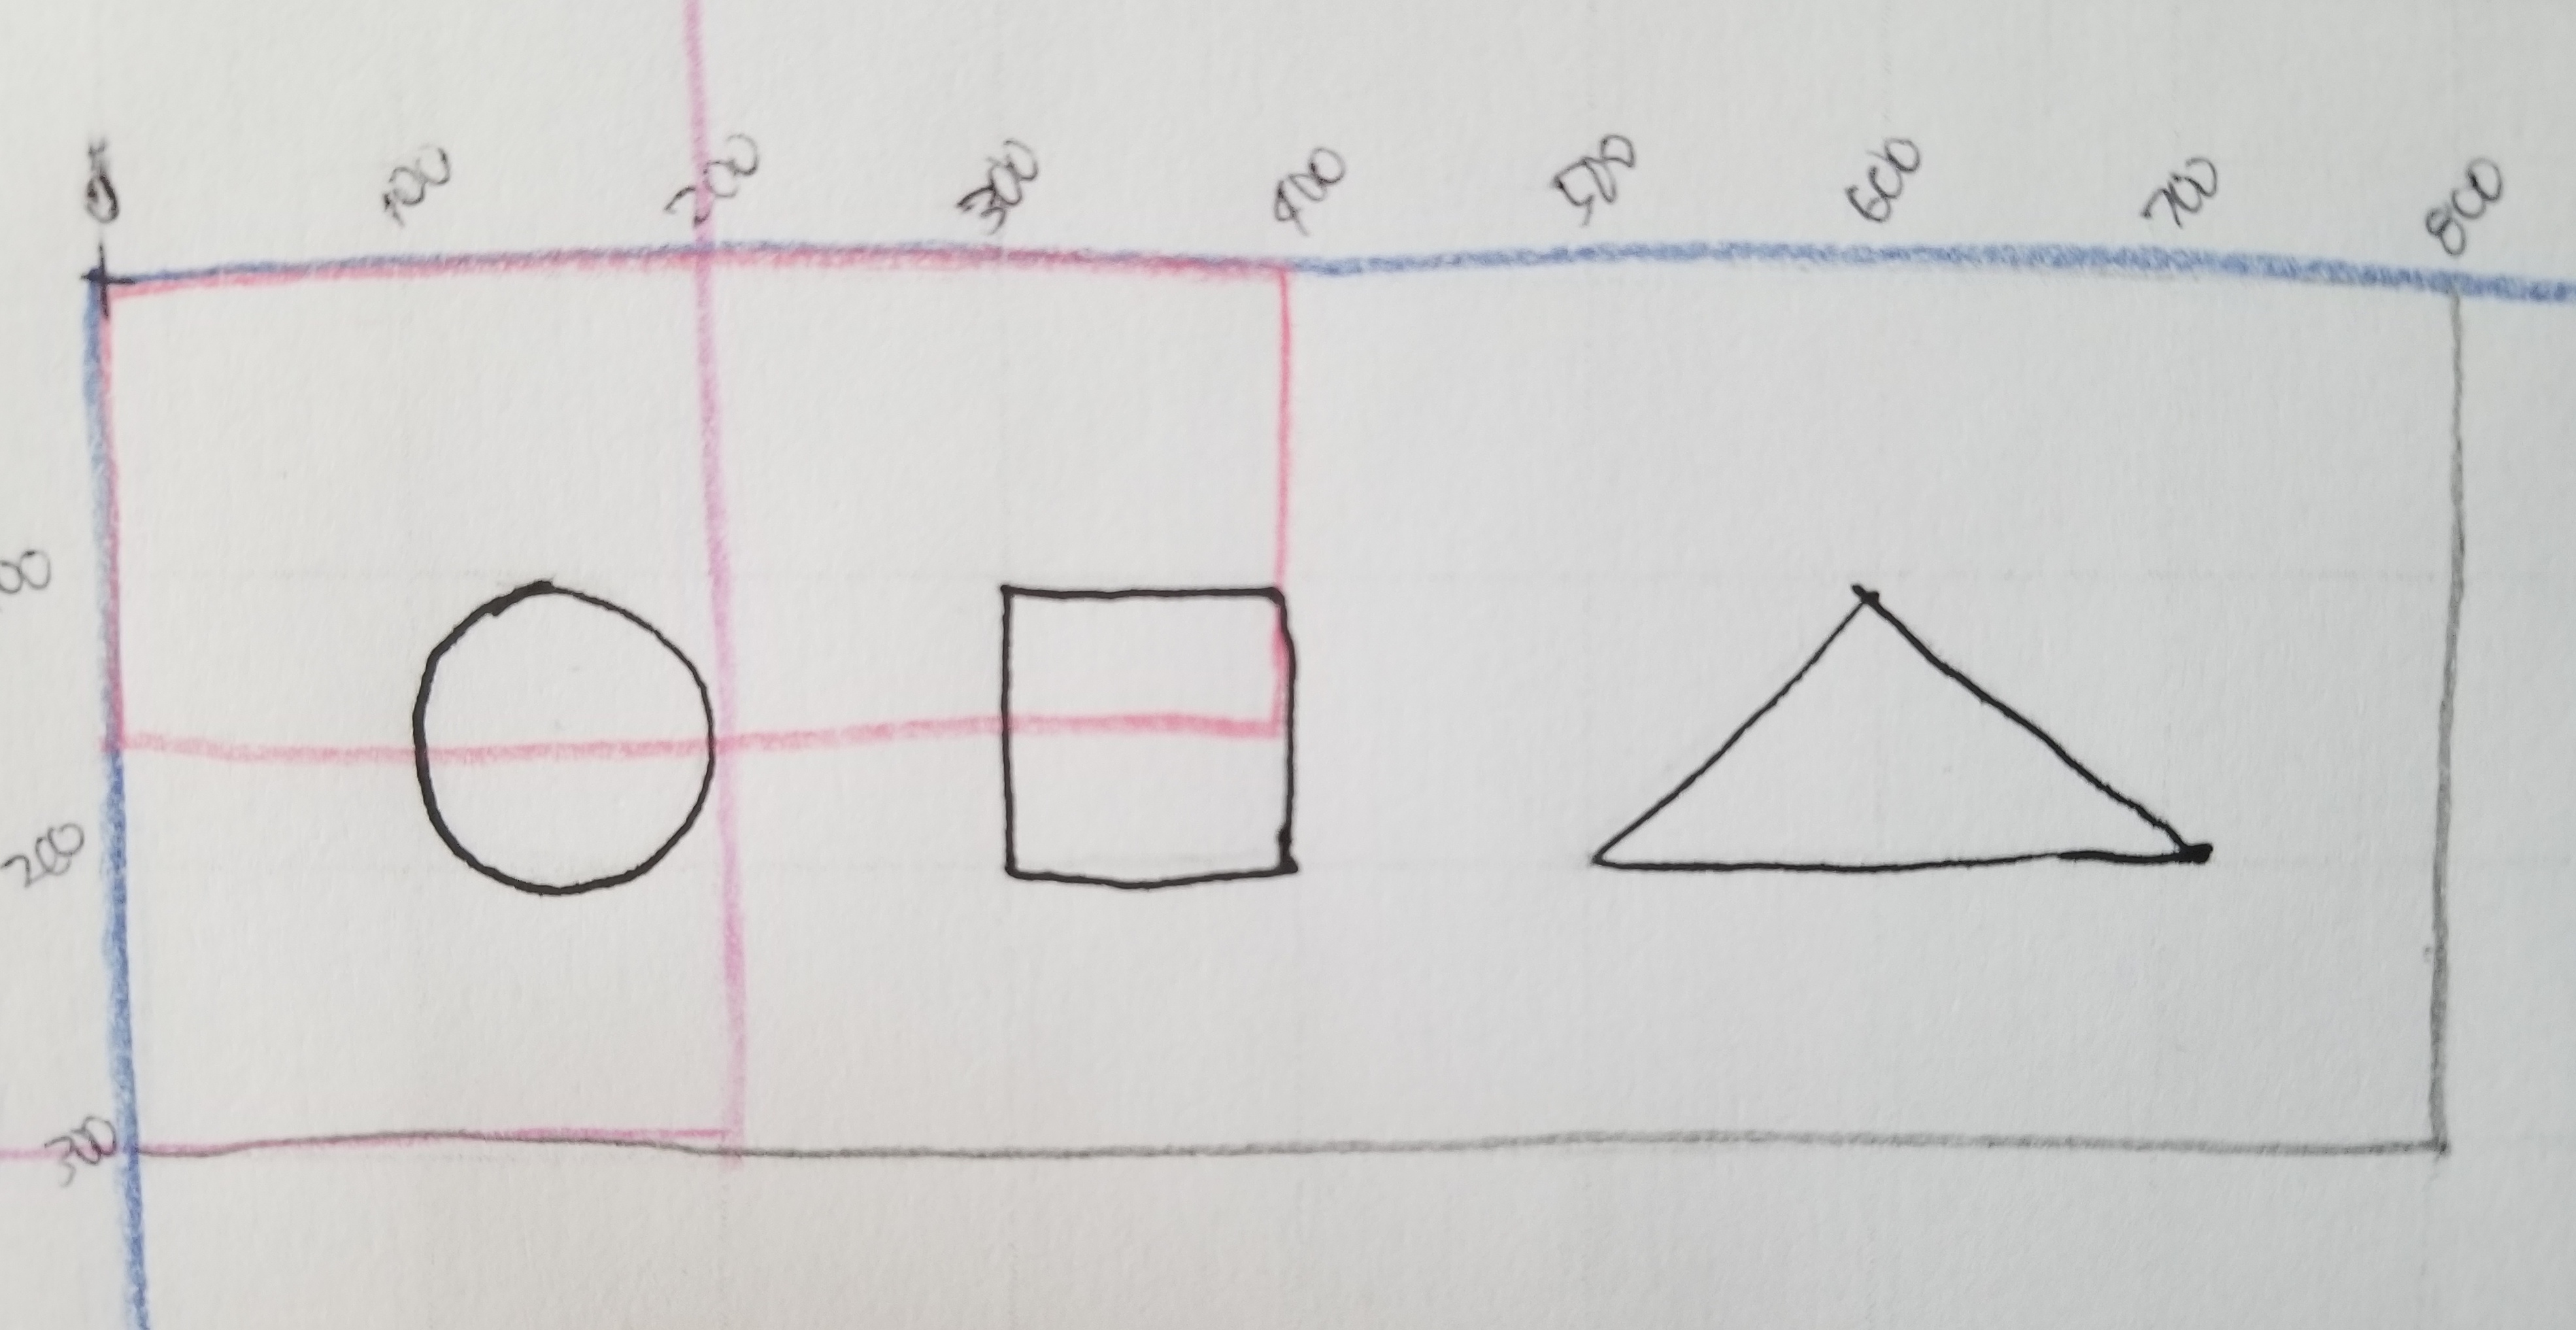 0 100 200 300 400 500 600 700 800
00
200
300